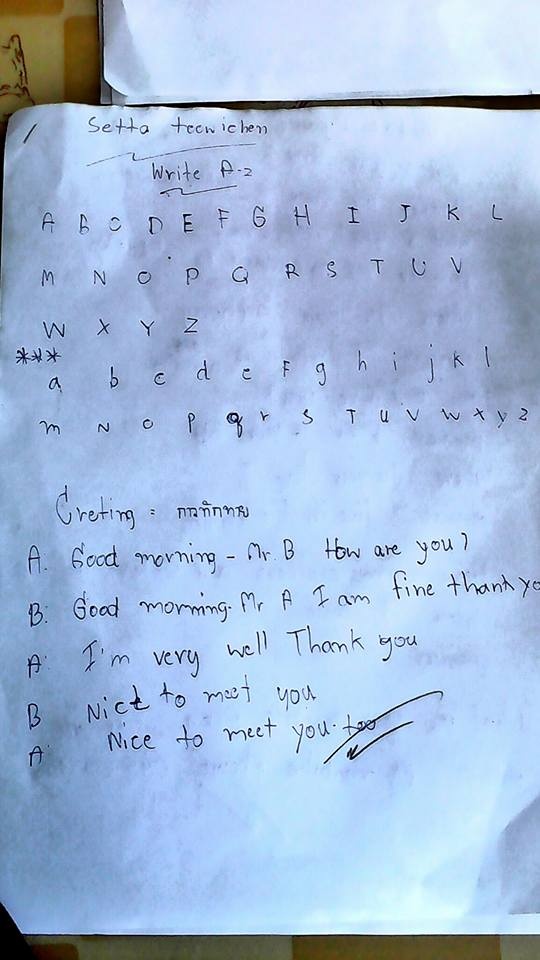 Setta teewichen
Write A-z
A B C D E F G H I J K L
M N O P Q R S T U V
W X Y Z
***
a b c d e F g h i j k l
m N o p q r S T u v w x y z
Creting = การทักทาย
A. Good morning - Mr. B How are you?
B: Good morning. Mr A I am fine thank yo
A: I'm very well Thank you
B Nice to meet you
A: Nice to meet you. too